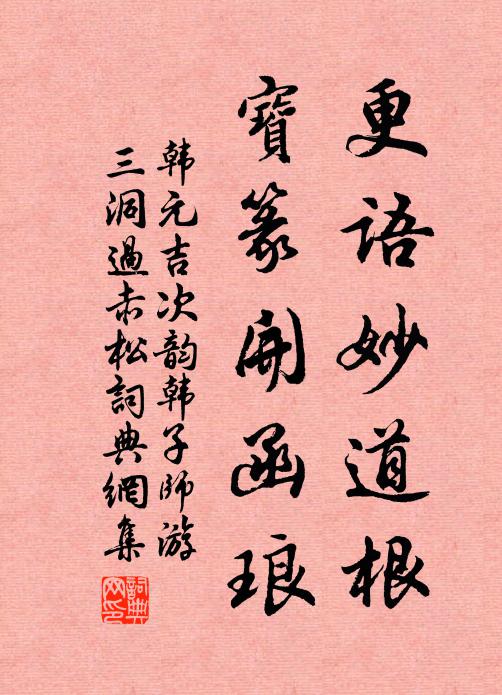 更语妙道根
寶篆開函琅
韩元吉次韵韩子师游
三洞過赤松詞典網集
詞典網印